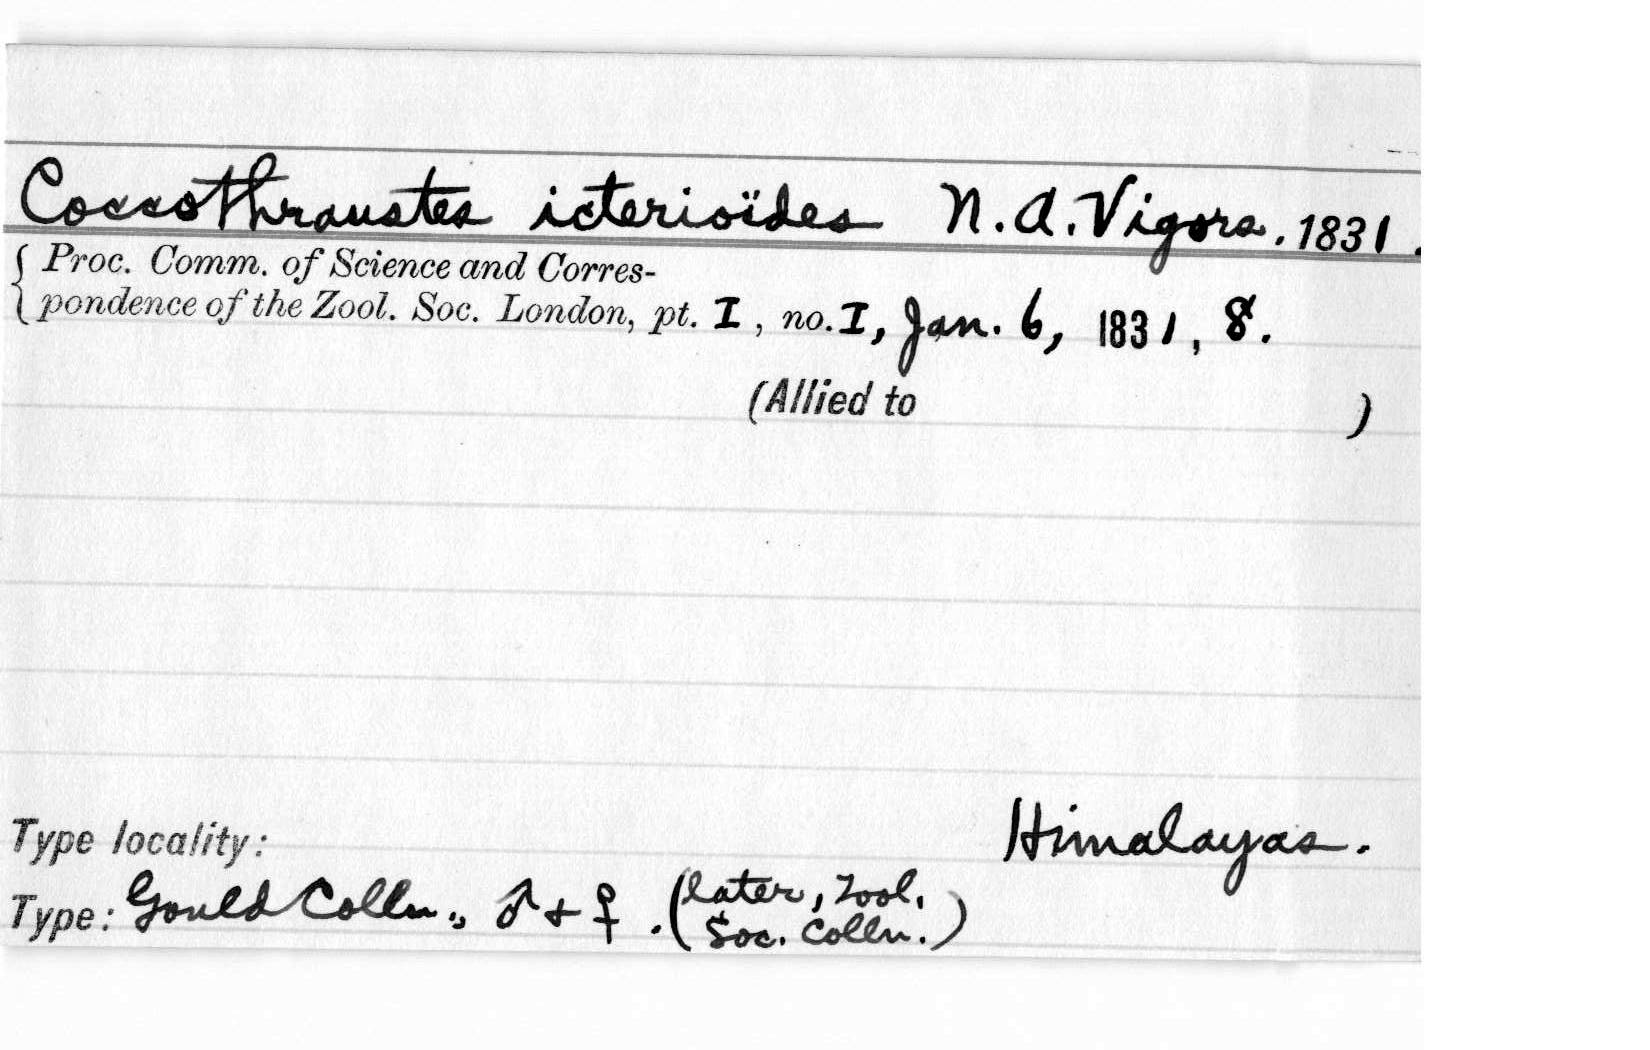 Coccothraustes icterioïdes N. A. Vigors. 1831.
{ Proc. Comm. of Science and Corres-
pondence of the Zool. Soc. London, pt. I, no. I, Jan. 6, 1831, 8.
(Allied to )
Type locality: Himalayas.
Type: Gould Colln., ♂ + ♀. (later, Zool.
Soc. Colln.)